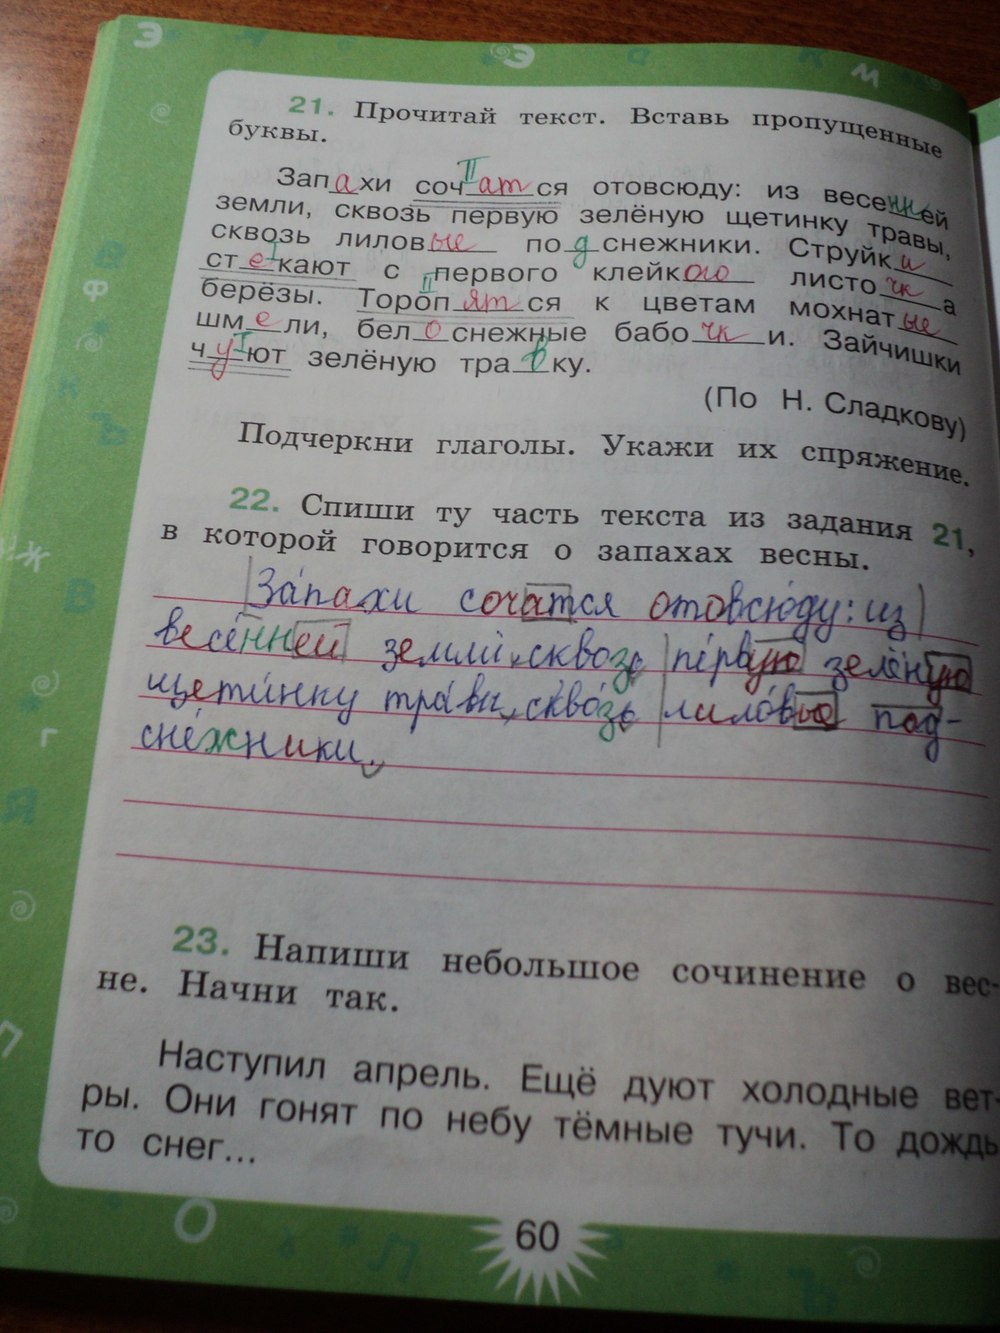 21. Прочитай текст. Вставь пропущенные
буквы.
Запахи сочатся отовсюду: из весенней
земли, сквозь первую зелёную щетинку травы,
сквозь лиловые подснежники. Струйки
стекают с первого клейкого листочка
берёзы. Торопятся к цветам мохнатые
шмели, белоснежные бабочки. Зайчишки
чуют зелёную травку.
(По Н. Сладкову)
Подчеркни глаголы. Укажи их спряжение.
22. Спиши ту часть текста из задания 21,
в которой говорится о запахах весны.
Запахи сочатся отовсюду: из
весенней земли, сквозь первую зелёную
щетинку травы, сквозь лиловые под-
снежники.
23. Напиши небольшое сочинение о вес-
не. Начни так.
Наступил апрель. Ещё дуют холодные вет-
ры. Они гонят по небу тёмные тучи. То дождь
то снег...
60